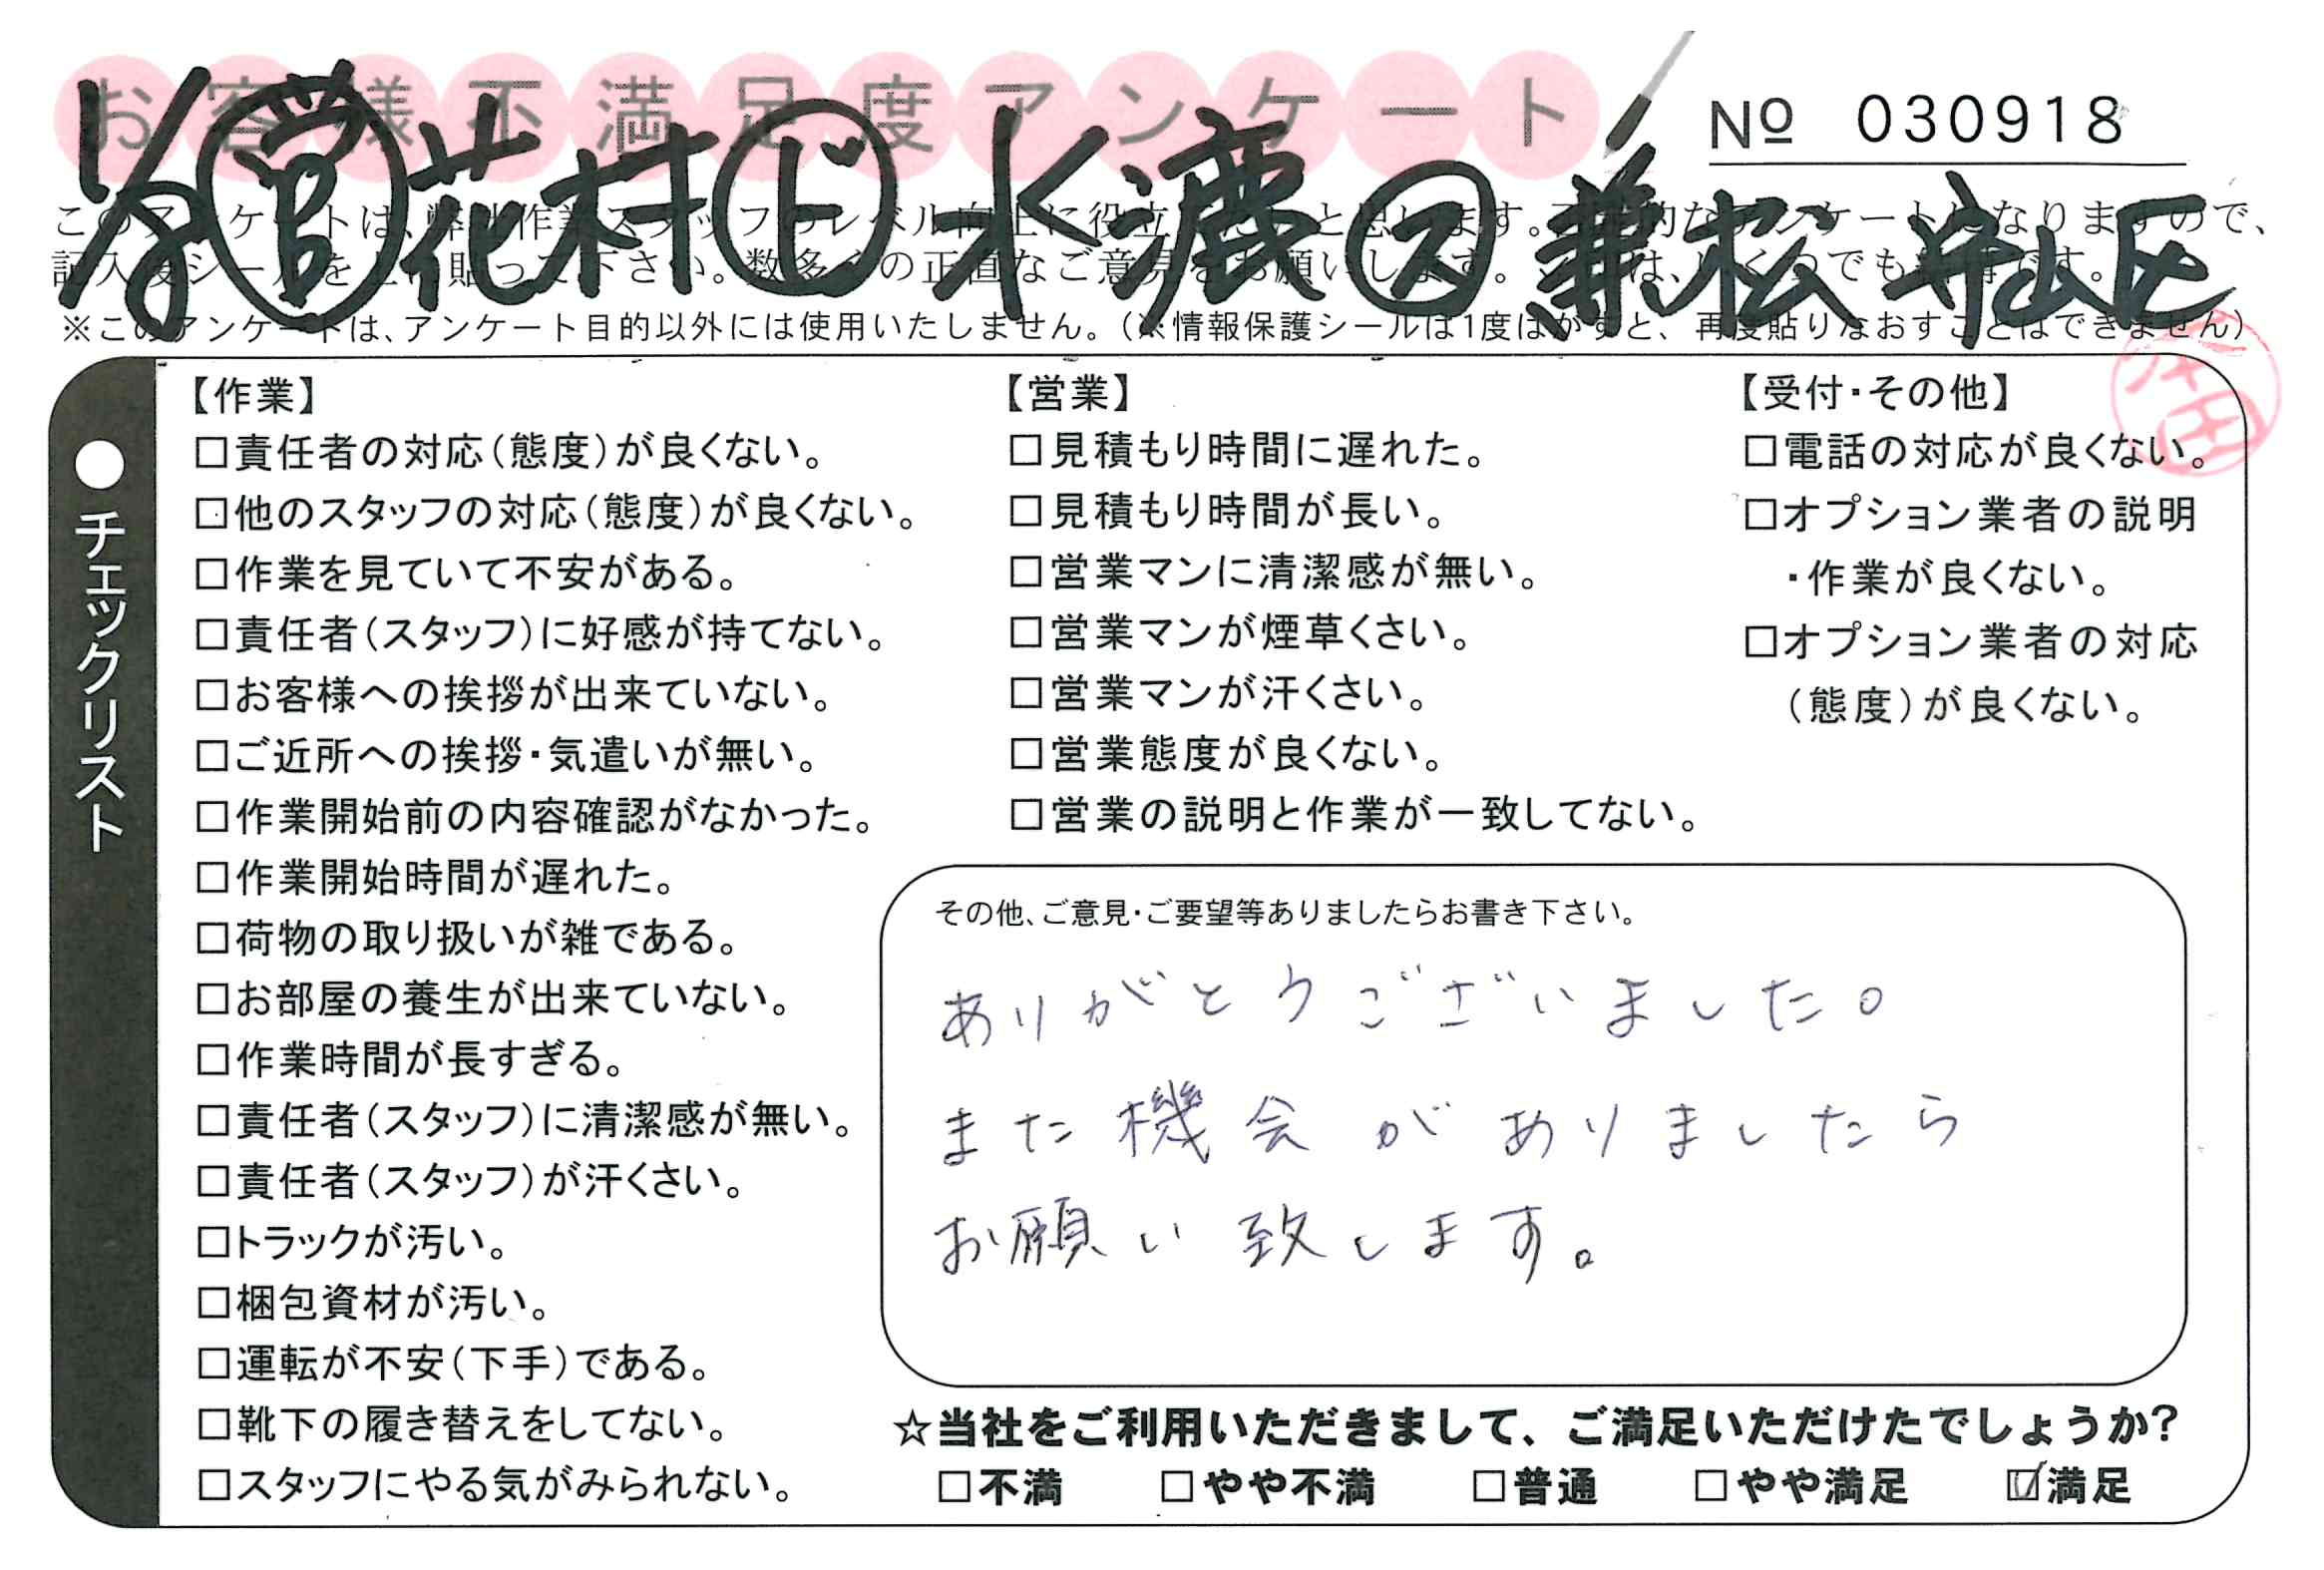 お客様不満足度アンケート
№ 030918
1/8 営 花村 ド 水漉 ス 兼松 守山区
このアンケートは、弊社作業スタッフのレベル向上に役立
記入後シールを上に貼って下さい。数多くの正直なご意見をお願いします。
※このアンケートは、アンケート目的以外には使用いたしません。(※情報保護シールは1度はがすと、再度貼りなおすことはできません)
●チェックリスト
【作業】
□責任者の対応(態度)が良くない。
□他のスタッフの対応(態度)が良くない。
□作業を見ていて不安がある。
□責任者(スタッフ)に好感が持てない。
□お客様への挨拶が出来ていない。
□ご近所への挨拶・気遣いが無い。
□作業開始前の内容確認がなかった。
□作業開始時間が遅れた。
□荷物の取り扱いが雑である。
□お部屋の養生が出来ていない。
□作業時間が長すぎる。
□責任者(スタッフ)に清潔感が無い。
□責任者(スタッフ)が汗くさい。
□トラックが汚い。
□梱包資材が汚い。
□運転が不安(下手)である。
□靴下の履き替えをしてない。
□スタッフにやる気がみられない。
【営業】
□見積もり時間に遅れた。
□見積もり時間が長い。
□営業マンに清潔感が無い。
□営業マンが煙草くさい。
□営業マンが汗くさい。
□営業態度が良くない。
□営業の説明と作業が一致してない。
【受付・その他】
□電話の対応が良くない。
□オプション業者の説明
・作業が良くない。
□オプション業者の対応
(態度)が良くない。
その他、ご意見・ご要望等ありましたらお書き下さい。
ありがとうございました。
また機会がありましたら
お願い致します。
☆当社をご利用いただきまして、ご満足いただけたでしょうか?
□不満 □やや不満 □普通 □やや満足 ☑満足